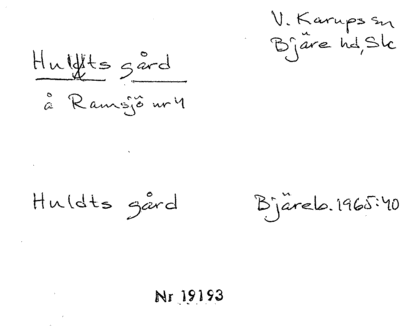 V. Karups sn
Bjäre hd, Sk
Huldts gård
å Ramsjö nr 4
Huldts gård Bjäreb. 1965:40
Nr 19193